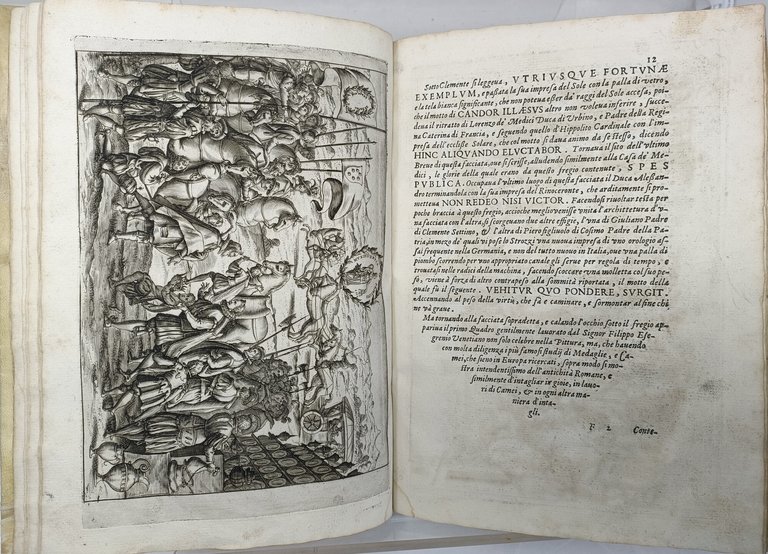 12
Sotto Clemente si leggeua, VTRIVSQVE FORTVNÆ
EXEMPLVM, e passata la sua impresa del Sole con la palla di vetro,
e la tela bianca significante, che non poteua esser da' raggi del Sole accesa, poi-
che il motto di CANDOR ILLÆSVS altro non voleua inferire, succe-
deua il ritratto di Lorenzo de' Medici Duca di Vrbino, e Padre della Regi-
na Caterina di Francia, e seguendo quello d'Hippolito Cardinale con l'im-
presa dell'eclisse Solare, che col motto si daua animo da se stesso, dicendo
HINC ALIQVANDO ELVCTABOR. Tornaua il sito dell'vltimo
Breue di questa facciata, oue si scrisse, alludendo similmente alla Casa de' Me-
dici, le glorie della quale erano da questo fregio contenute, SPES
PVBLICA. Occupaua l'vltimo luogo di questa facciata il Duca Alessan-
dro terminandola con la sua impresa del Rinoceronte, che arditamente si pro-
metteua NON REDEO NISI VICTOR. Facendosi riuoltar testa per
poche braccia à questo fregio, accioche meglio venisse vnita l'architettura d'v-
na facciata con l'altra, si scorgeuano due altre effigie, l'vna di Giuliano Padre
di Clemente Settimo, & l'altra di Piero figliuolo di Cosimo Padre della Pa-
tria, in mezo de' quali vi pose lo Strozzi vna nuoua impresa di vno orologio as-
sai frequente nella Germania, e non del tutto nuouo in Italia, oue vna palla di
piombo scorrendo per vno appropriato canale gli serue per regola di tempo, e
trouatasi nelle radici della machina, facendo scoccare vna molletta col suo pe-
so, viene à forza di altro contrapeso alla sommità riportata, il motto della
quale fù il seguente. VEHITVR QVO PONDERE, SVRGIT.
Accennando al peso della virtù, che fà e caminare, e sormontar al fine chi
ne và graue.
Ma tornando alla facciata sopradetta, e calando l'occhio sotto il fregio ap-
pariua il primo Quadro gentilmente lauorato dal Signor Filippo Ese-
grenio Venetiano non solo celebre nella Pittura, ma, che hauendo
con molta diligenza i più famosi studij di Medaglie, e Ca-
mei, che sieno in Europa ricercati, sopra modo si mo-
stra intendentissimo dell'antichità Romane, e
similmente d'intagliar in gioie, in lauo-
ri di Camei, & in ogni altra ma-
niera d'inta-
gli.
F 2 Conte-